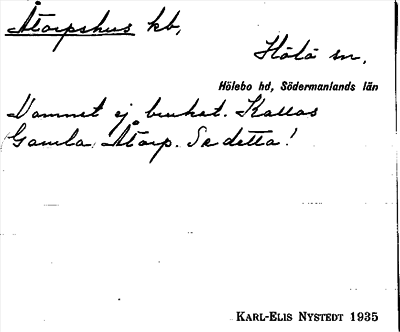 Åtorpshus kb,
Hölö sn,
Hölebo hd, Södermanlands län
Namnet ej brukat. Kallas
Gamla Åtorp. Se detta!
KARL-ELIS NYSTEDT 1935